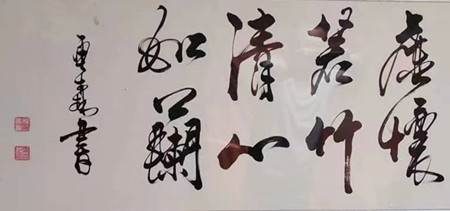 虚懷
若竹
清心
如蘭
書